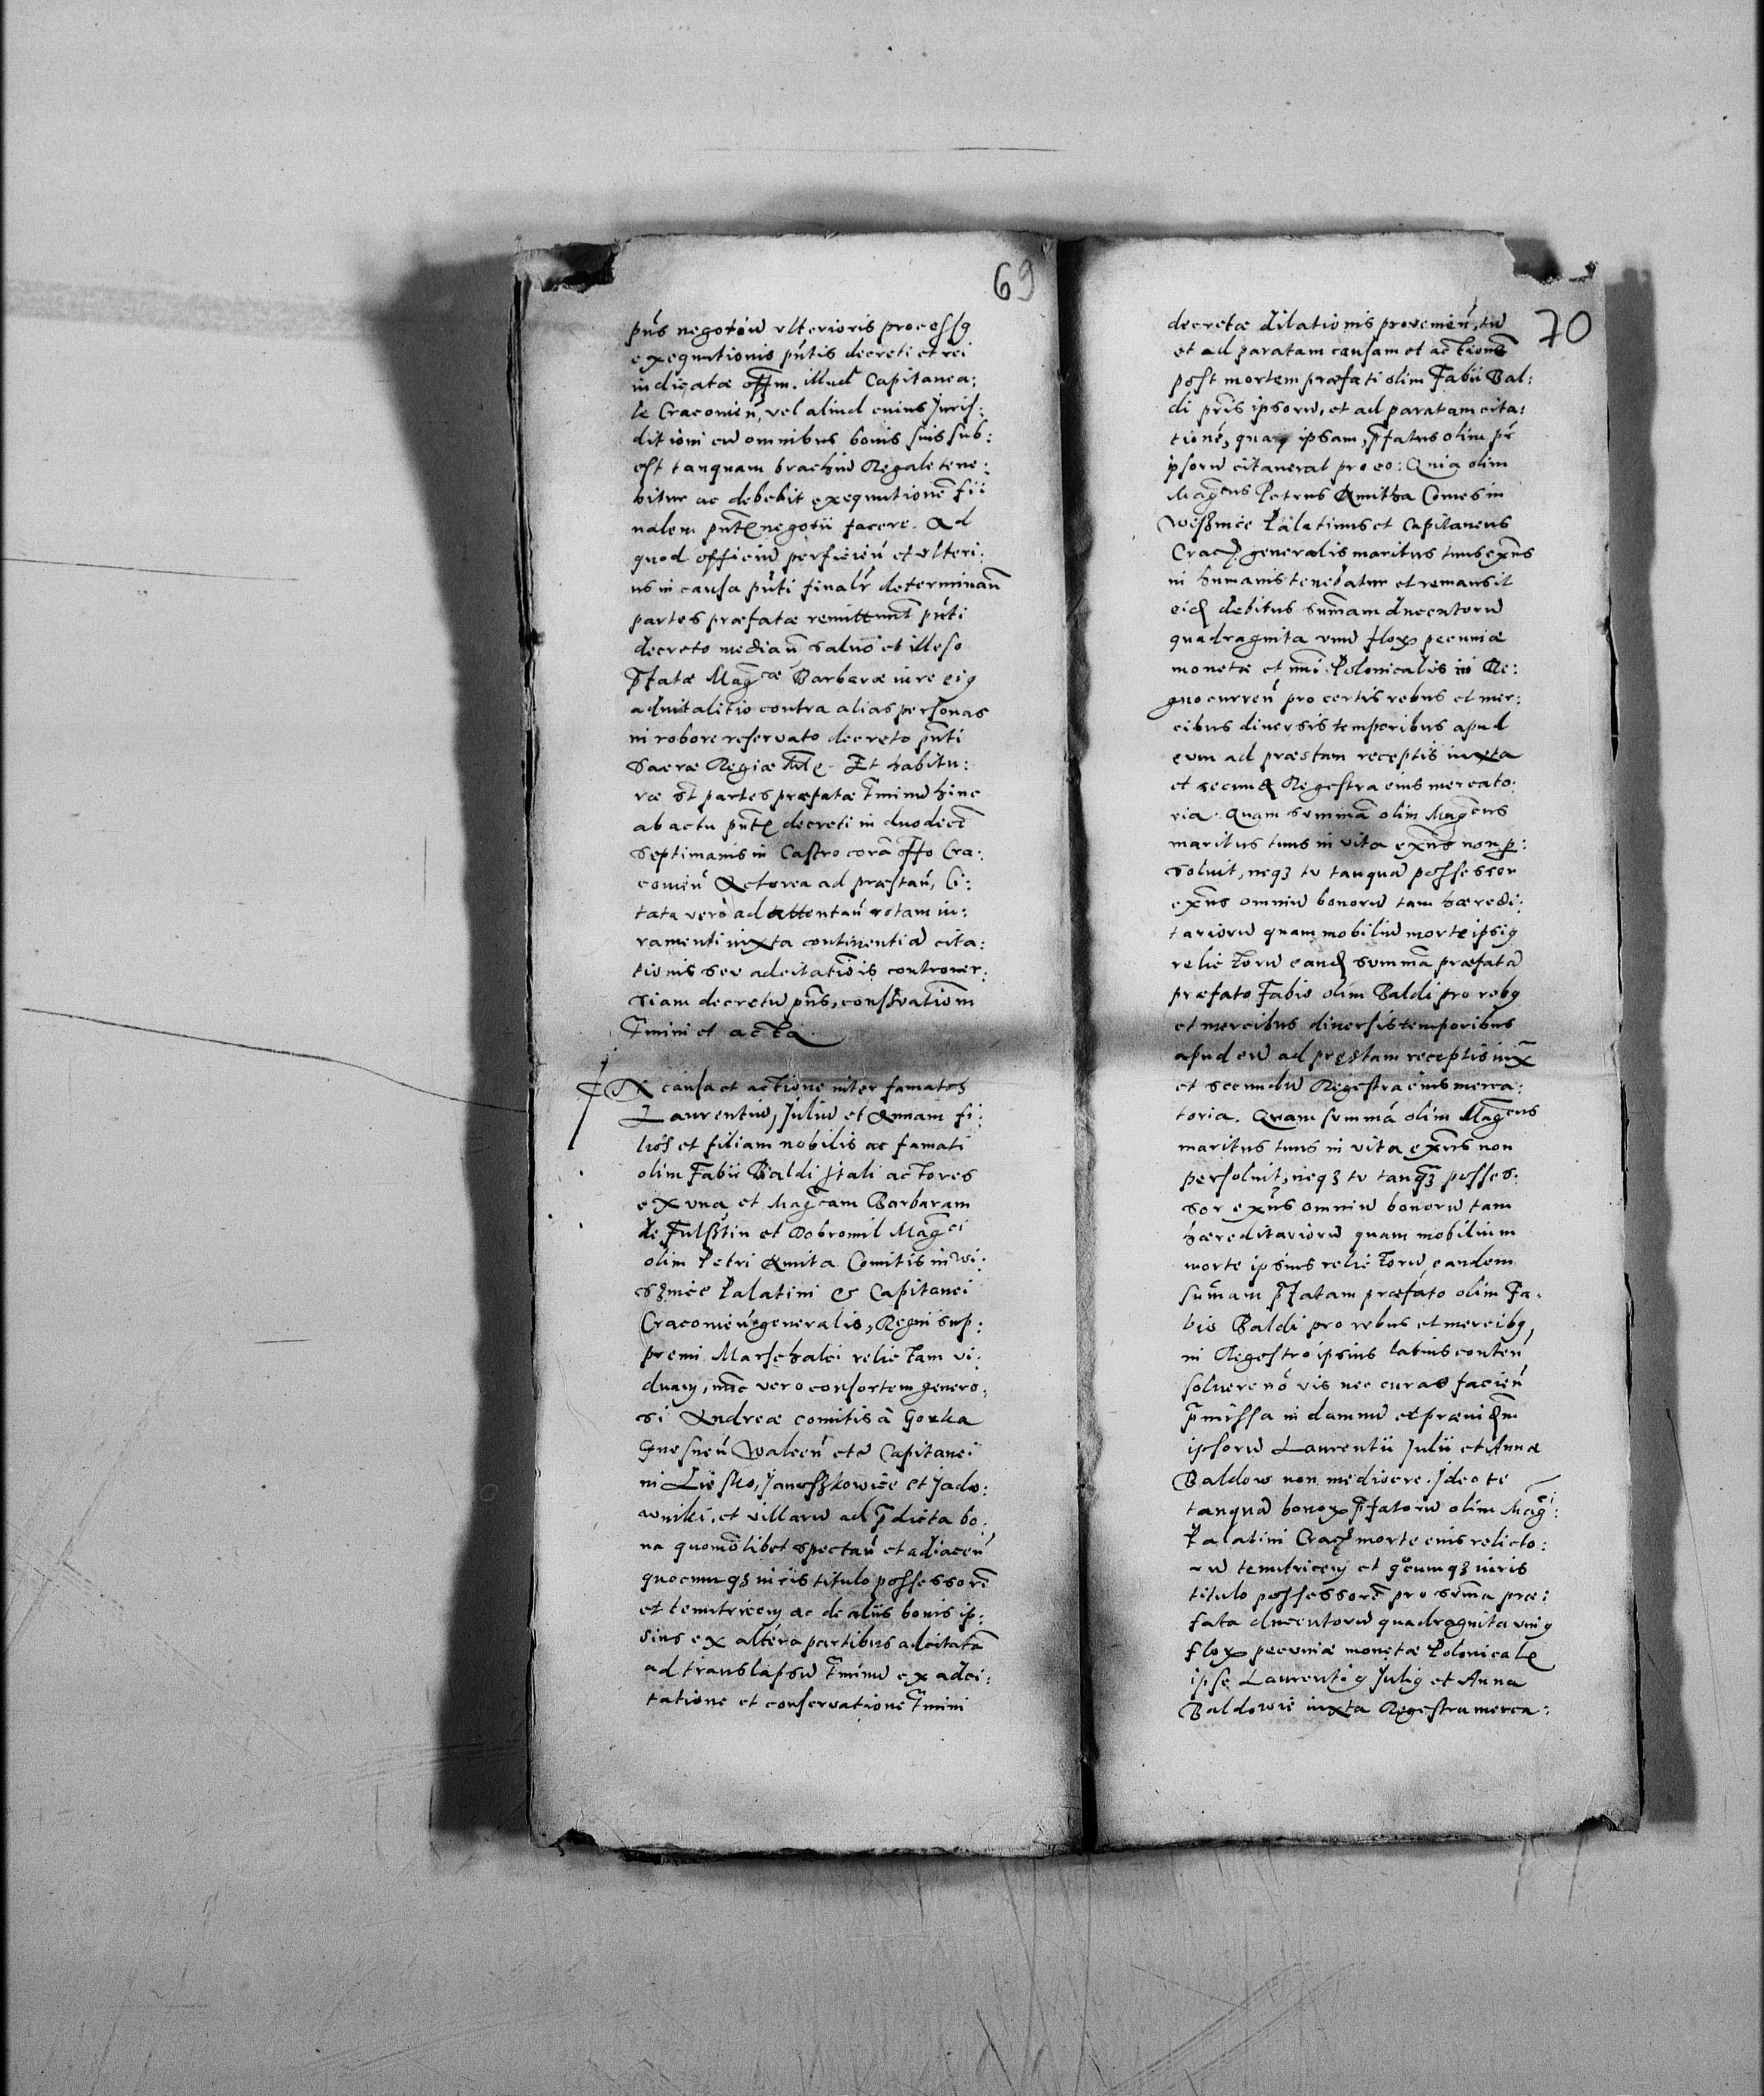 69
pn̄s negotiū vlterioris processꝯ
exequutionis pn̄tis decreti et rei
iudicatæ offm. illud Capitanea:
le Cracouien̄, vel aliud cuius Juris:
ditioni cū omnibus bonis suis sub:
est tanquam brachiū Regale tene:
bitur ac debebit exequutionē fii
nalem pn̄tꝭ negotii facere. Ad
quod officiū perficien̄ et vlteri:
us in causa pn̄ti finalr̄ determinan̄
partes præfatæ remittunt pn̄ti
decreto median̄ saluo et illeso
p̄fatæ Mag͞cæ Barbaræ iure eiꝯ
aduitalitio contra alias personas
in robore reseruato decreto pn̄ti
sacræ Regiæ Mtꝭ. Et habitu:
ræ st̄ partes præfatæ t̄minū hinc
ab actu pn̄tꝭ decreti in duodecē
septimanis in Castro corā offo Cra:
couien̄ Actorea ad præstan̄, Ci:
tata vero ad attentan̄ rotam iu:
ramenti iuxta continentiā cita:
tionis seu adcitatiōis controuer:
siam decretū pn̄s, conservatiōm
t̄mini et acta
IN causa et actione inter famatos
Laurentiū, Juliū et Annam fi:
lios et filiam nobilis ac famati
olim Fabii Baldi Jtali actores
ex vna et Mag͞cam Barbaram
de Fulsstin et Dobromil Mag͞ci
olim Petri Kmita Comitis in Wi:
sznice Palatini & Capitanei
Cracouien̄ generalis, Regni sup:
premi Marschalci relictam vi:
duam, nūc vero consortem genero:
si Andreæ comitis à Gorka
Gnesnen̄ Walcen̄ etc̄ Capitanei
in Liesko, Janoszkowice et Jado:
wniki, et villarū ad p̄dicta bo:
na quomōlibet spectan̄ et adiacen̄
quocunqꝫ iuris titulo possessorē
et tenutricem ac de aliis bonis ip:
sius ex altera partibus adcitatā
ad translapsū t̄minū ex adci:
tatione et conservatione t̄mini
70
decretæ dilationis prouenien̄, tū
et ad paratam causam et actionē
post mortem præfati olim Fabii Bal:
di pr̄is ipsorū, et ad paratam cita:
tionē, quam ipsam, p̄fatus olim pr̄
ipsorū citauerat pro eo: Quia olim
Mag͞cus Petrus Kmitha Comes in
Wissznicze Palatinus et Capitaneus
Crac͞. generalis maritus tuus exn̄s
in humanis tenebatur et remansit
eidꝭ debitus sum̄am ducentorū
quadraginta vnū floꝝ pecuniæ
monetæ et nūi Polonicalis in Re:
gno curren̄ pro certis rebus et mer:
cibus diuersis temporibus apud
eum ad præstam receptis iuxta
et secundꝭ Regestra eius mercato:
ria. Quam summā olim Mag͞cus
maritus tuus in vita exn̄s non ꝑ:
soluit, neqꝫ tu tanquā possessor
exn̄s omniū bonorū tam hæredi:
tariorū quam mobiliū morte ipsiꝯ
relictorū eandꝭ summā præfatā
præfato Fabio olim Baldi pro rebꝯ
et mercibus diuersis temporibus
apud eū ad pręstam receptis iux̄
et secundū Regestra eius merca:
toria. Quam summā olim Mag͞cus
maritus tuus in vita exn̄s non
persoluit, neqꝫ tu tanqꝫ posses:
sor exn̄s omniū bonorū tam
hæreditariorū quam mobilium
morte ipsius relictorū eandem
sum̄am p̄fatam præfato olim Fa:
bio Baldi pro rebus et mercibꝯ,
in Regestro ipsius latius conten̄
soluere nō vis nec curas facien̄
p̄missa in damnū et præiudm
ipsorū Laurentii Julii et Annæ
Baldow non mediocre. Jdeo te
tanquā bonoꝝ p̄fatorū olim Mag͞ci:
Palatini Crac͞ morte eius relicto:
rū tenutricem et qͦcumqꝫ iuris
titulo possessorē pro sum̄a præ:
fata ducentorū quadraginta vniꝯ
floꝝ pecuniæ monetæ Polonicalꝭ
ipse Laurentiꝯ Juliꝯ et Anna
Baldowie iuxta Regestra merca: